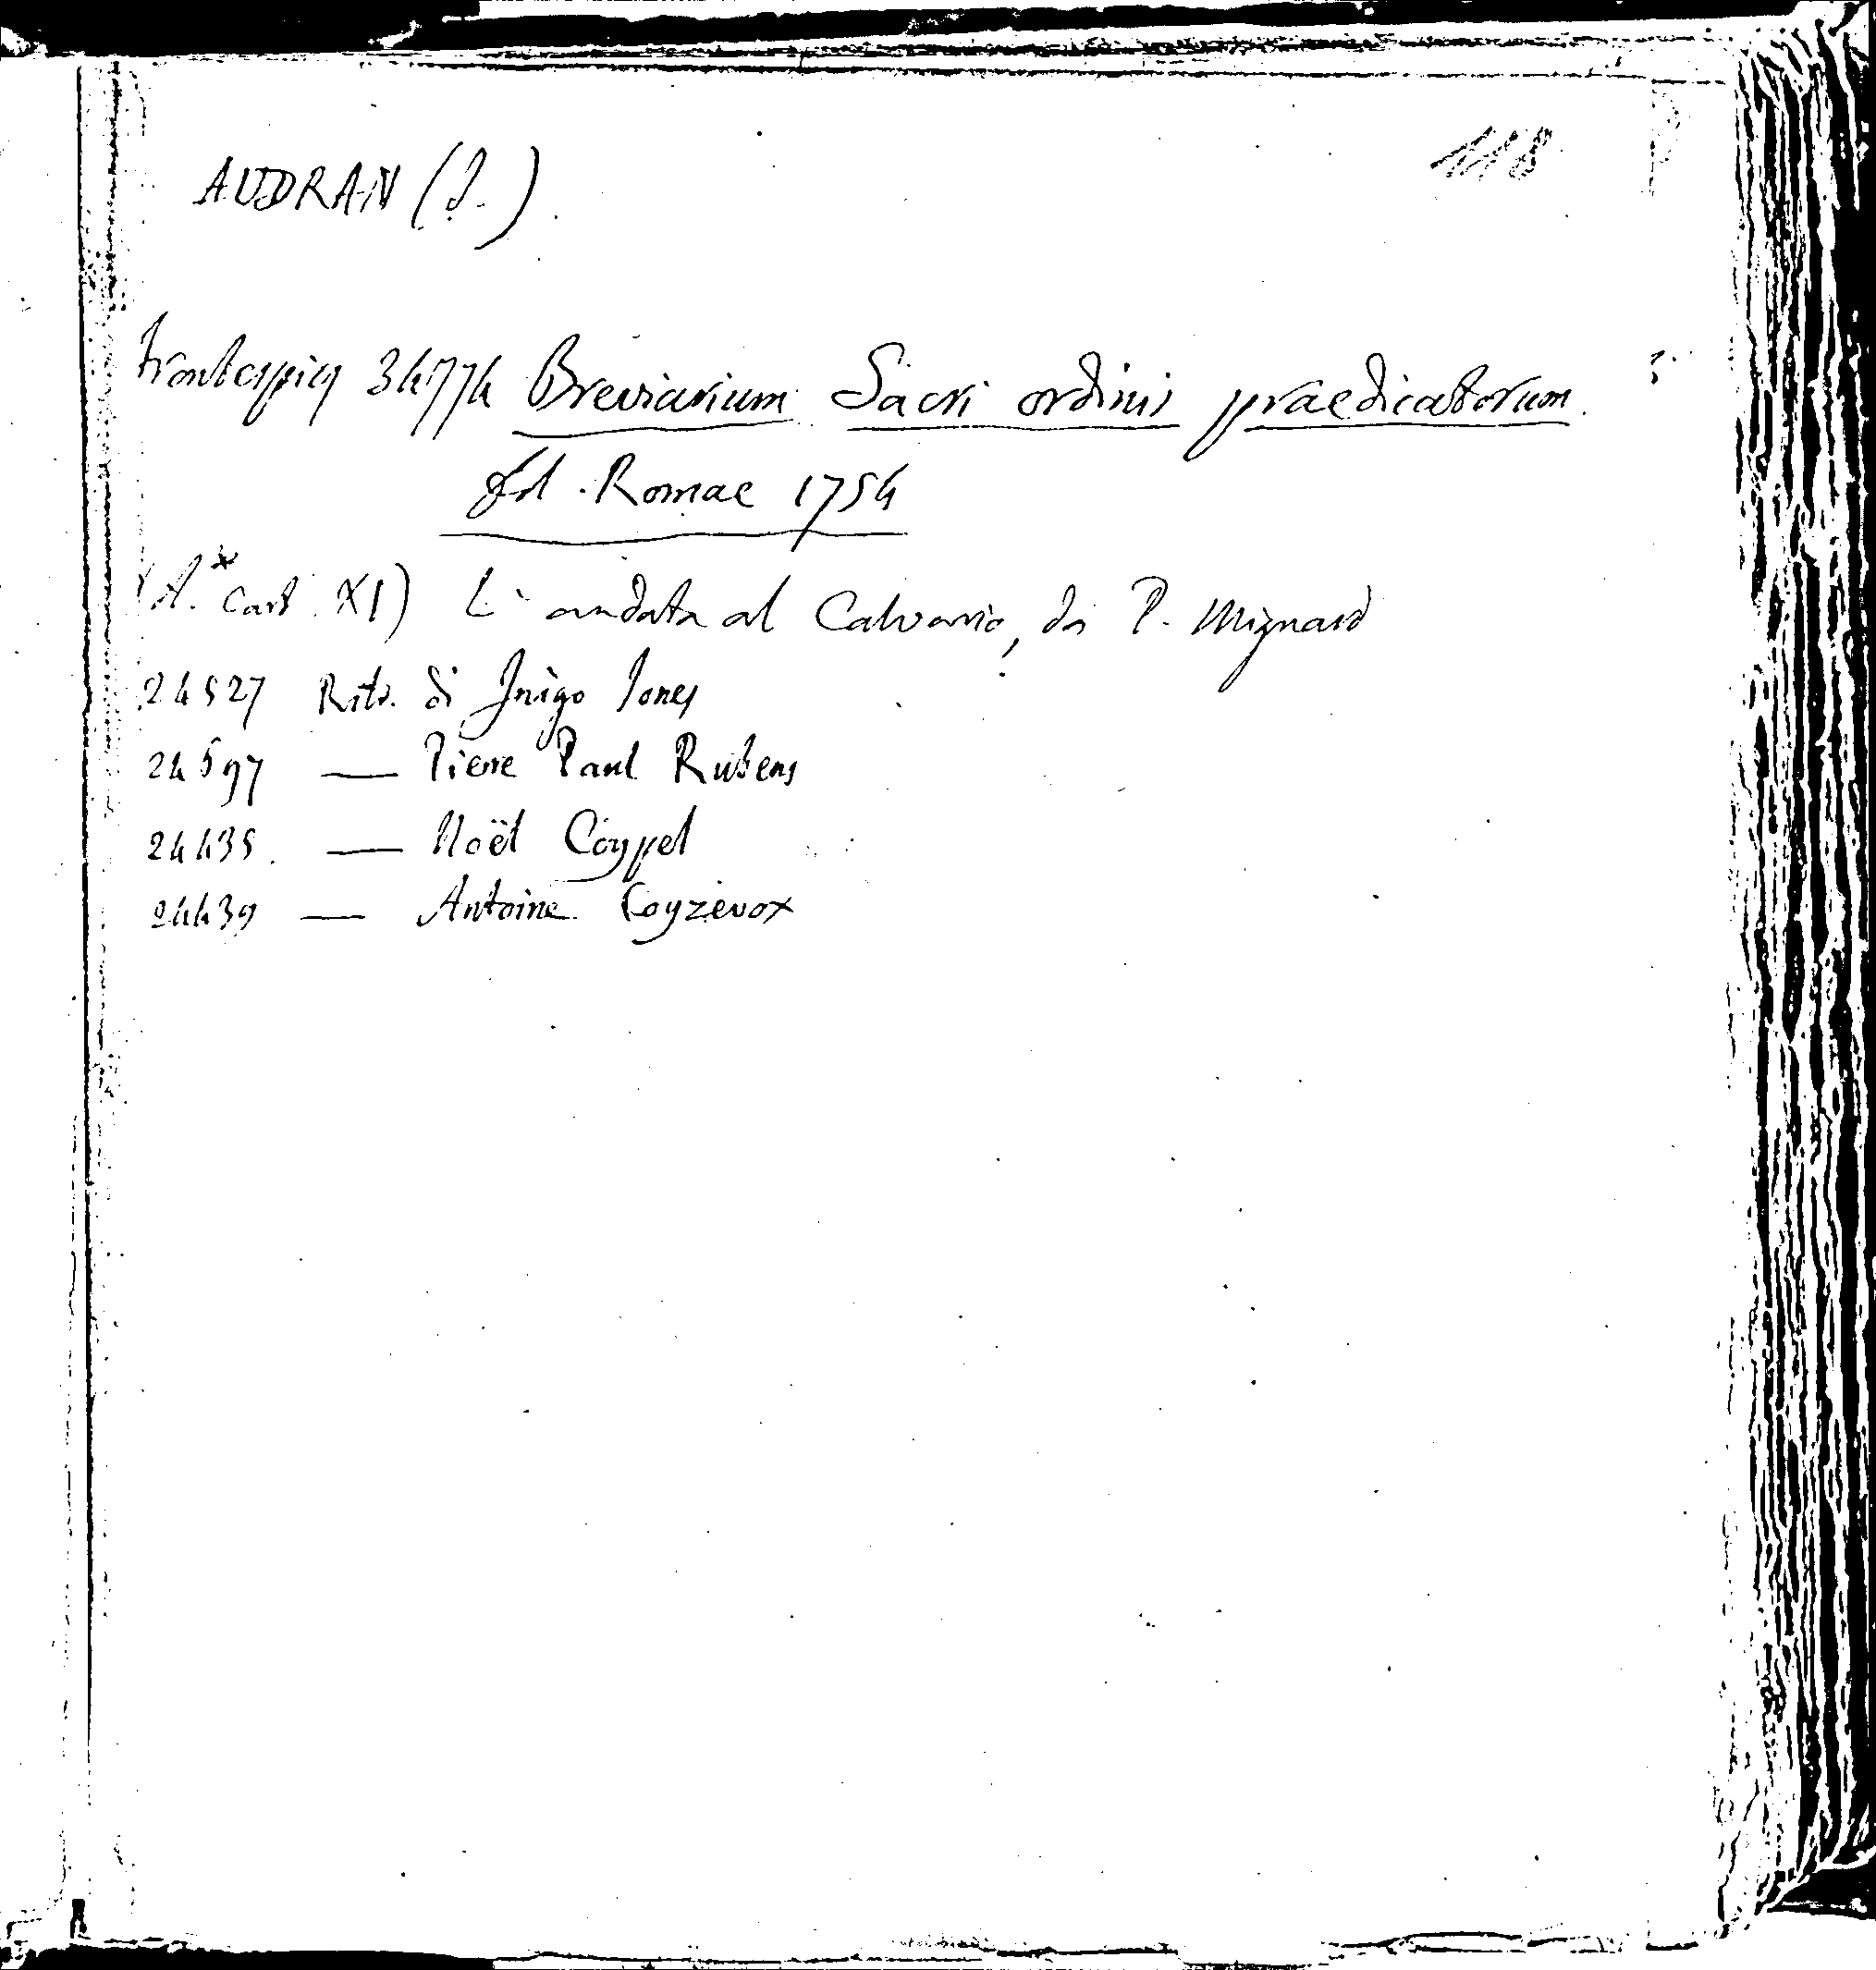 118
AUDRAN (J.)
frontespicy 34774 Breviarium Sacri ordinis praedicatorum
Ed. Romae 1754
(A.* Cart. XI) L'andata al Calvario, da P. Mignard
24527 Ritr. di Inigo Jones
24597 — Pierre Paul Rubens
24435. — Noël Coypel
24439 — Antoine Coyzevox